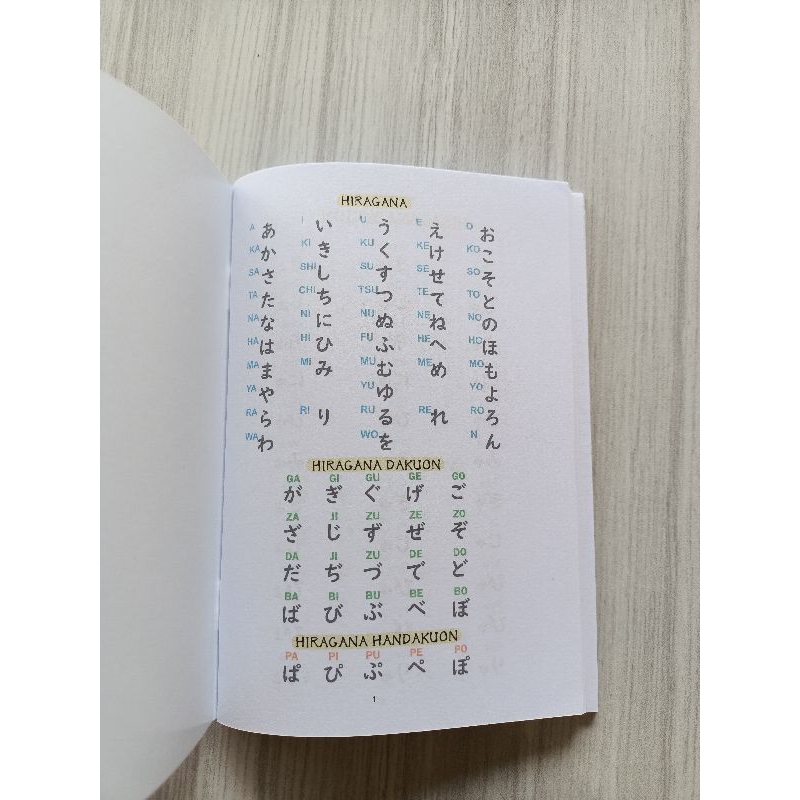 HIRAGANA
A あ I い U う E え O お
KA か KI き KU く KE け KO こ
SA さ SHI し SU す SE せ SO そ
TA た CHI ち TSU つ TE て TO と
NA な NI に NU ぬ NE ね NO の
HA は HI ひ FU ふ HE へ HO ほ
MA ま MI み MU む ME め MO も
YA や YU ゆ YO よ
RA ら RI り RU る RE れ RO ろ
WA わ WO を N ん
HIRAGANA DAKUON
GA GI GU GE GO
が ぎ ぐ げ ご
ZA JI ZU ZE ZO
ざ じ ず ぜ ぞ
DA JI ZU DE DO
だ ぢ づ で ど
BA BI BU BE BO
ば び ぶ べ ぼ
HIRAGANA HANDAKUON
PA PI PU PE PO
ぱ ぴ ぷ ぺ ぽ
1